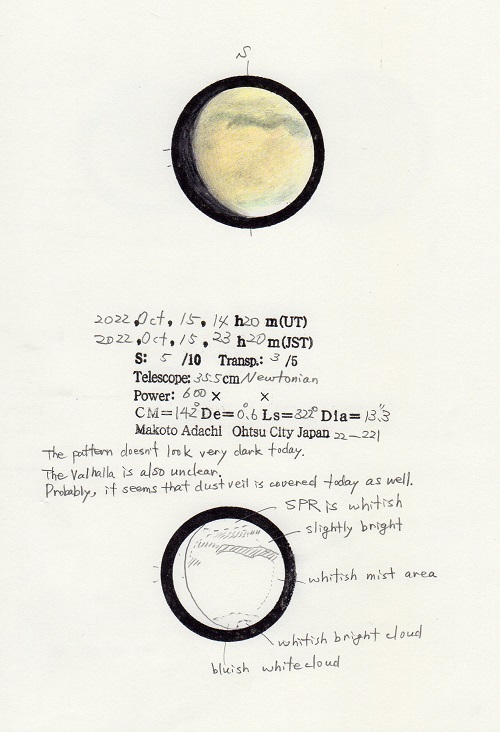 S
2022, Oct, 15, 14 h20 m(UT)
2022, Oct, 15, 23 h20 m(JST)
S: 5 /10 Transp.: 3 /5
Telescope: 35.5cm Newtonian
Power: 600 × ×
CM=142° De=0.6° Ls=322° Dia=13.″3
Makoto Adachi Ohtsu City Japan 22-221
The pattern doesn't look very dark today.
The Valhalla is also unclear.
Probably, it seems that dust veil is covered today as well.
SPR is whitish
slightly bright
whitish mist area
whitish bright cloud
bluish white cloud